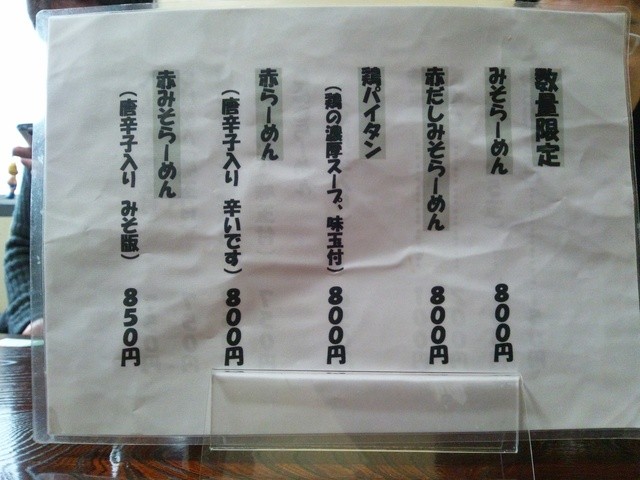 数量限定
みそらーめん 800円
赤だしみそらーめん 800円
鶏パイタン
(鶏の濃厚スープ、味玉付) 800円
赤らーめん
(唐辛子入り 辛いです) 800円
赤みそらーめん
(唐辛子入り みそ版) 850円